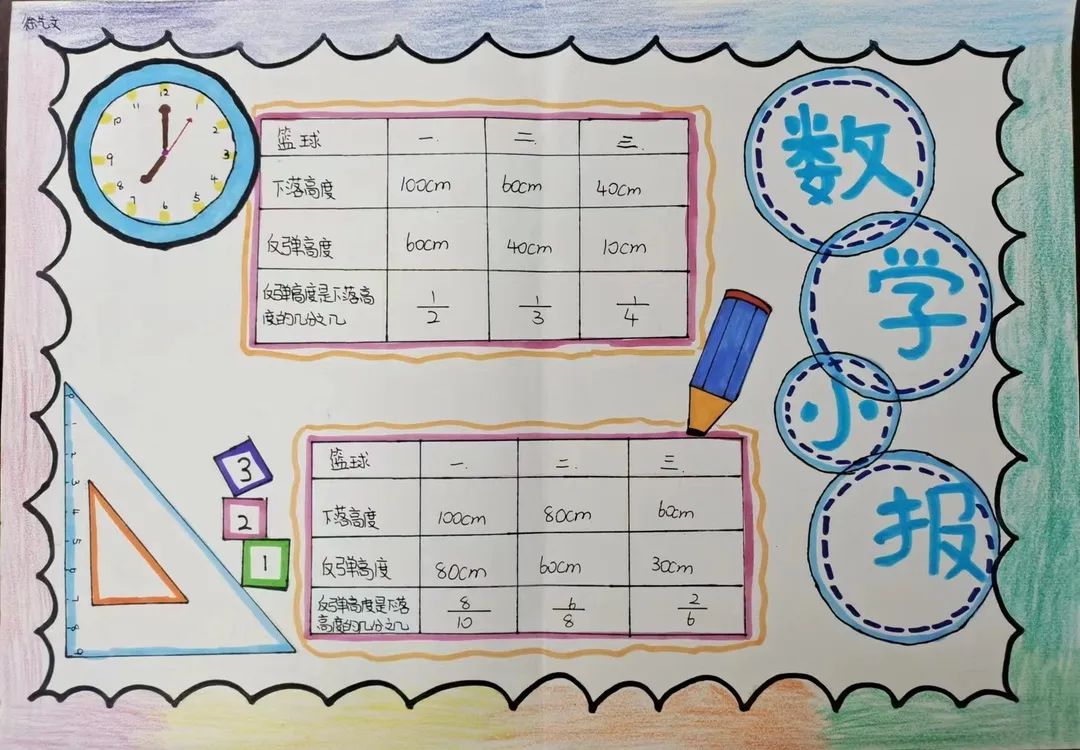 徐艺文
数
学
小
报
12
1
2
3
4
5
6
7
8
9
10
11
篮球 一. 二. 三.
下落高度 100cm 60cm 40cm
反弹高度 60cm 40cm 10cm
反弹高度是下落高
度的几分之几 1/2 1/3 1/4
篮球 一. 二. 三.
下落高度 100cm 80cm 60cm
反弹高度 80cm 60cm 30cm
反弹高度是下落
高度的几分之几 8/10 6/8 2/6
3
2
1
0
1
2
3
4
5
6
7
8
9